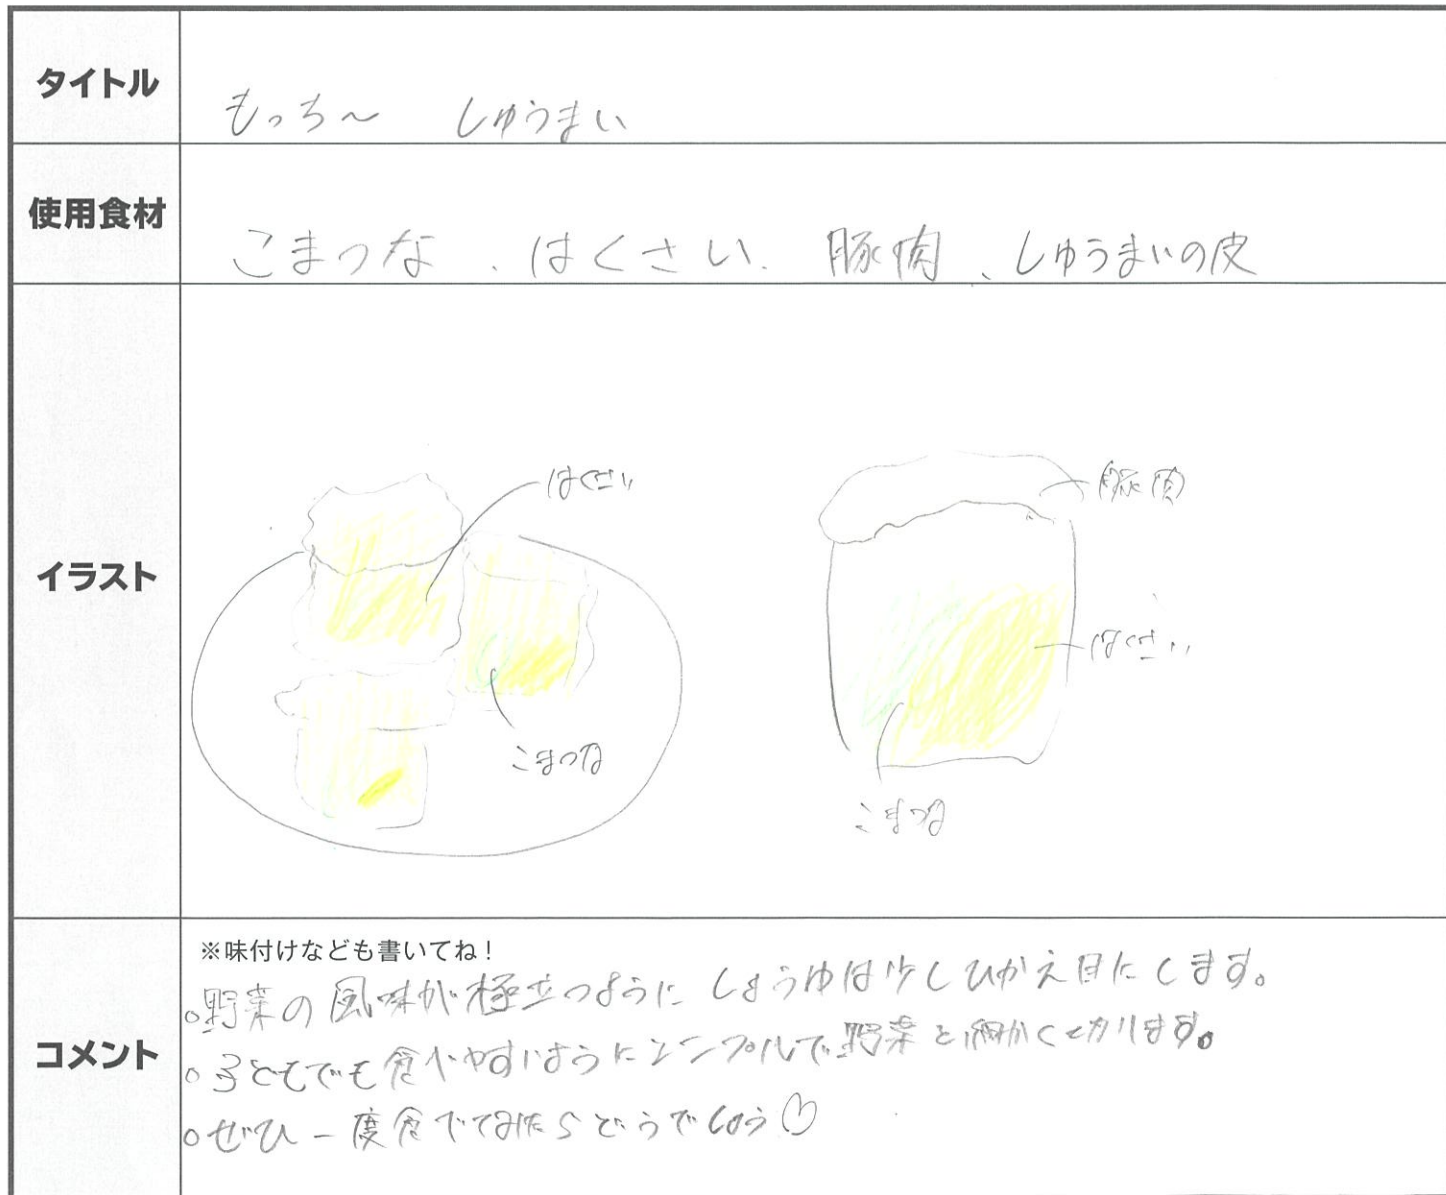 タイトル
もっち～ しゅうまい
使用食材
こまつな、はくさい、豚肉、しゅうまいの皮
イラスト
はくさい
こまつな
豚肉
はくさい
こまつな
コメント
※味付けなども書いてね!
○野菜の風味が極立つように しょうゆは少しひかえ目にします。
○子どもでも食べやすいようにシンプルで野菜を細かく切ります。
○ぜひ一度食べてみたらどうでしょう♡